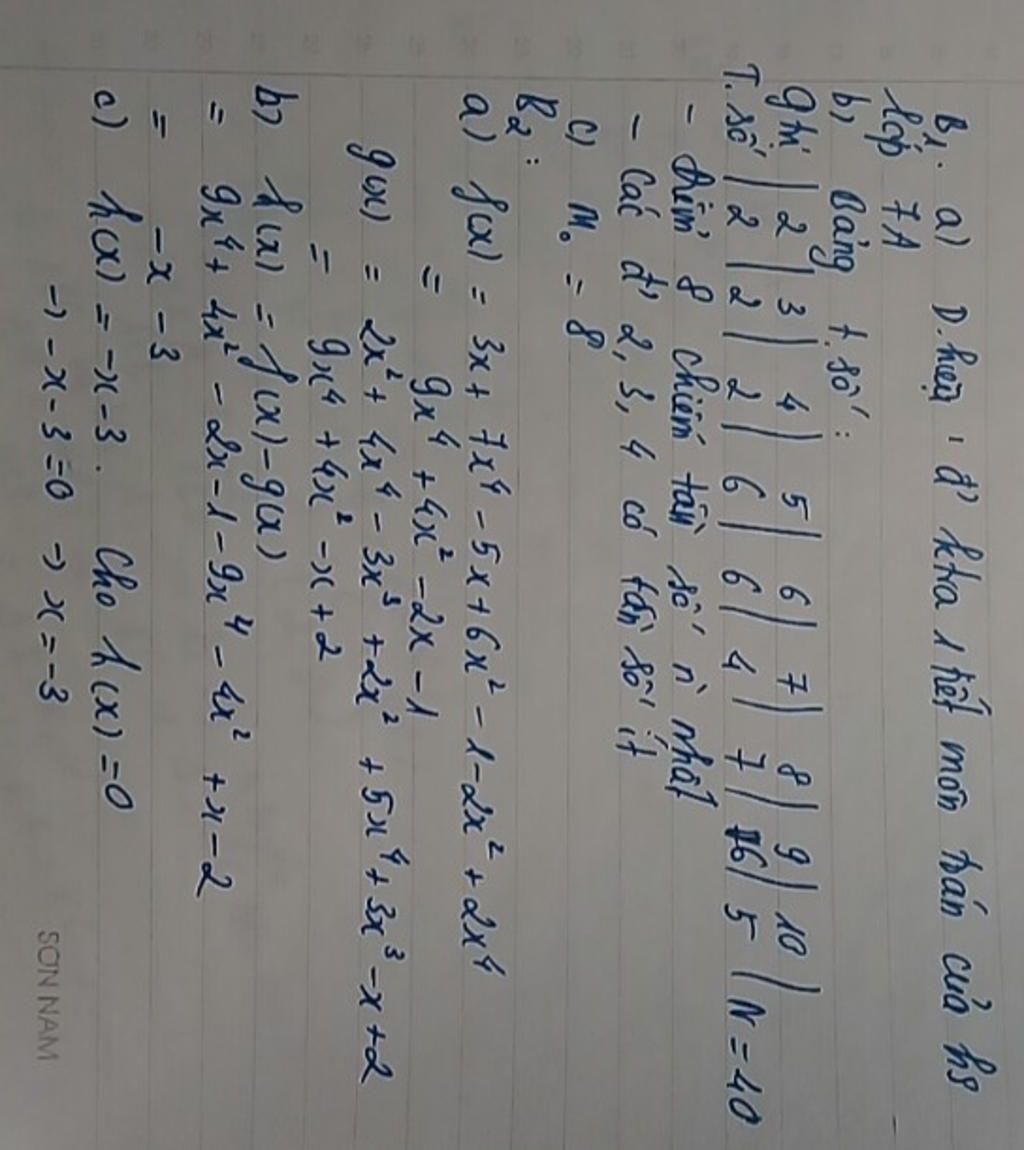 B1. a) D.hiệu : đ' ktra 1 tiết môn toán của hs
lớp 7A
b, Bảng t.số:
gtri | 2 | 3 | 4 | 5 | 6 | 7 | 8 | 9 | 10 |
T. số | 2 | 2 | 2 | 6 | 6 | 4 | 7 | 6 | 5 | N = 40
- Điểm 8 chiếm tần số n' nhất
- Các đ' 2, 3, 4 có tần số ít
c, M₀ = 8
B2:
a) f(x) = 3x + 7x⁴ - 5x + 6x² - 1 - 2x² + 2x⁴
= 9x⁴ + 4x² - 2x - 1
g(x) = 2x² + 4x⁴ - 3x³ + 2x² + 5x⁴ + 3x³ - x + 2
= 9x⁴ + 4x² - x + 2
b, h(x) = f(x) - g(x)
= 9x⁴ + 4x² - 2x - 1 - 9x⁴ - 4x² + x - 2
= -x - 3
c) h(x) = -x - 3. Cho h(x) = 0
→ -x - 3 = 0 → x = -3
SON NAM